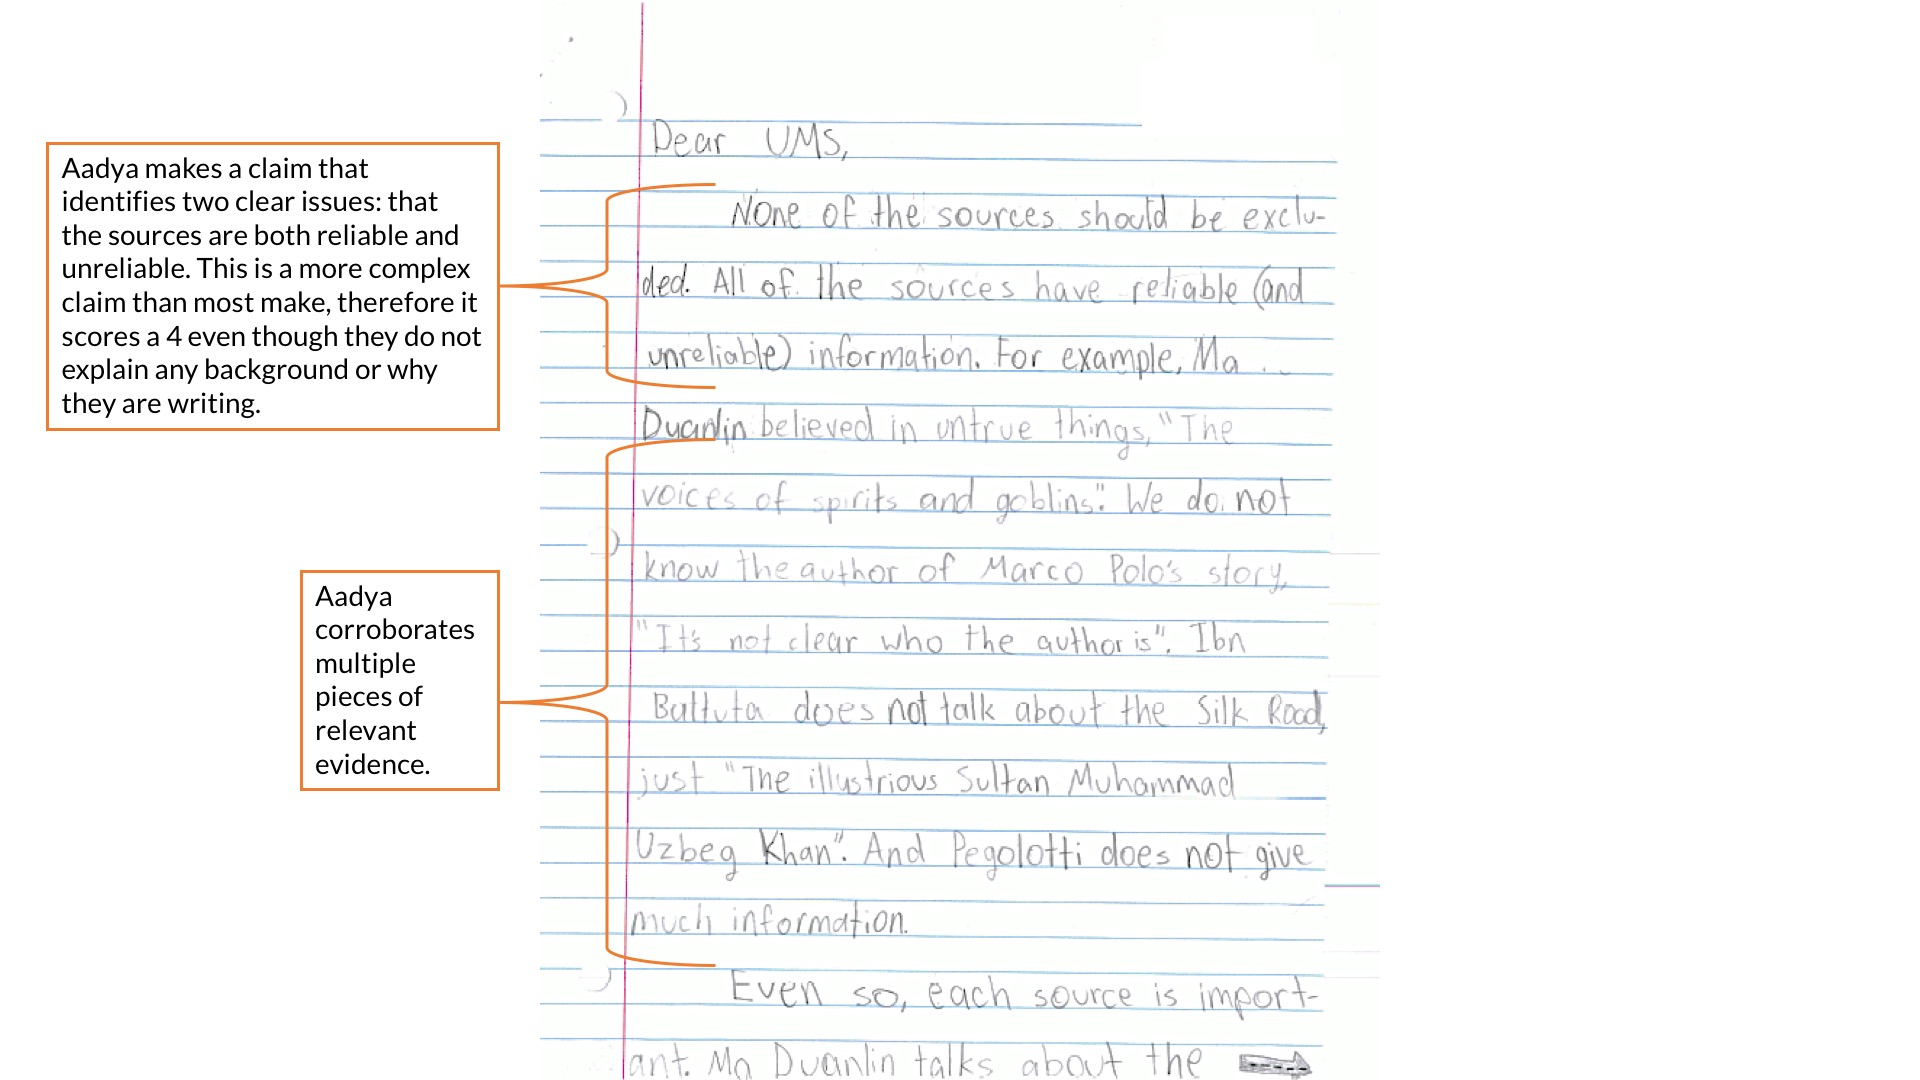 Aadya makes a claim that
identifies two clear issues: that
the sources are both reliable and
unreliable. This is a more complex
claim than most make, therefore it
scores a 4 even though they do not
explain any background or why
they are writing.
Aadya
corroborates
multiple
pieces of
relevant
evidence.
Dear UMS,
None of the sources should be exclu-
ded. All of the sources have reliable (and
unreliable) information. For example, Ma
Duanlin believed in untrue things, "The
voices of spirits and goblins". We do not
know the author of Marco Polo's story,
"It's not clear who the author is". Ibn
Battuta does not talk about the Silk Road,
just "The illustrious Sultan Muhammad
Uzbeg Khan". And Pegolotti does not give
much information.
Even so, each source is import-
ant. Ma Duanlin talks about the